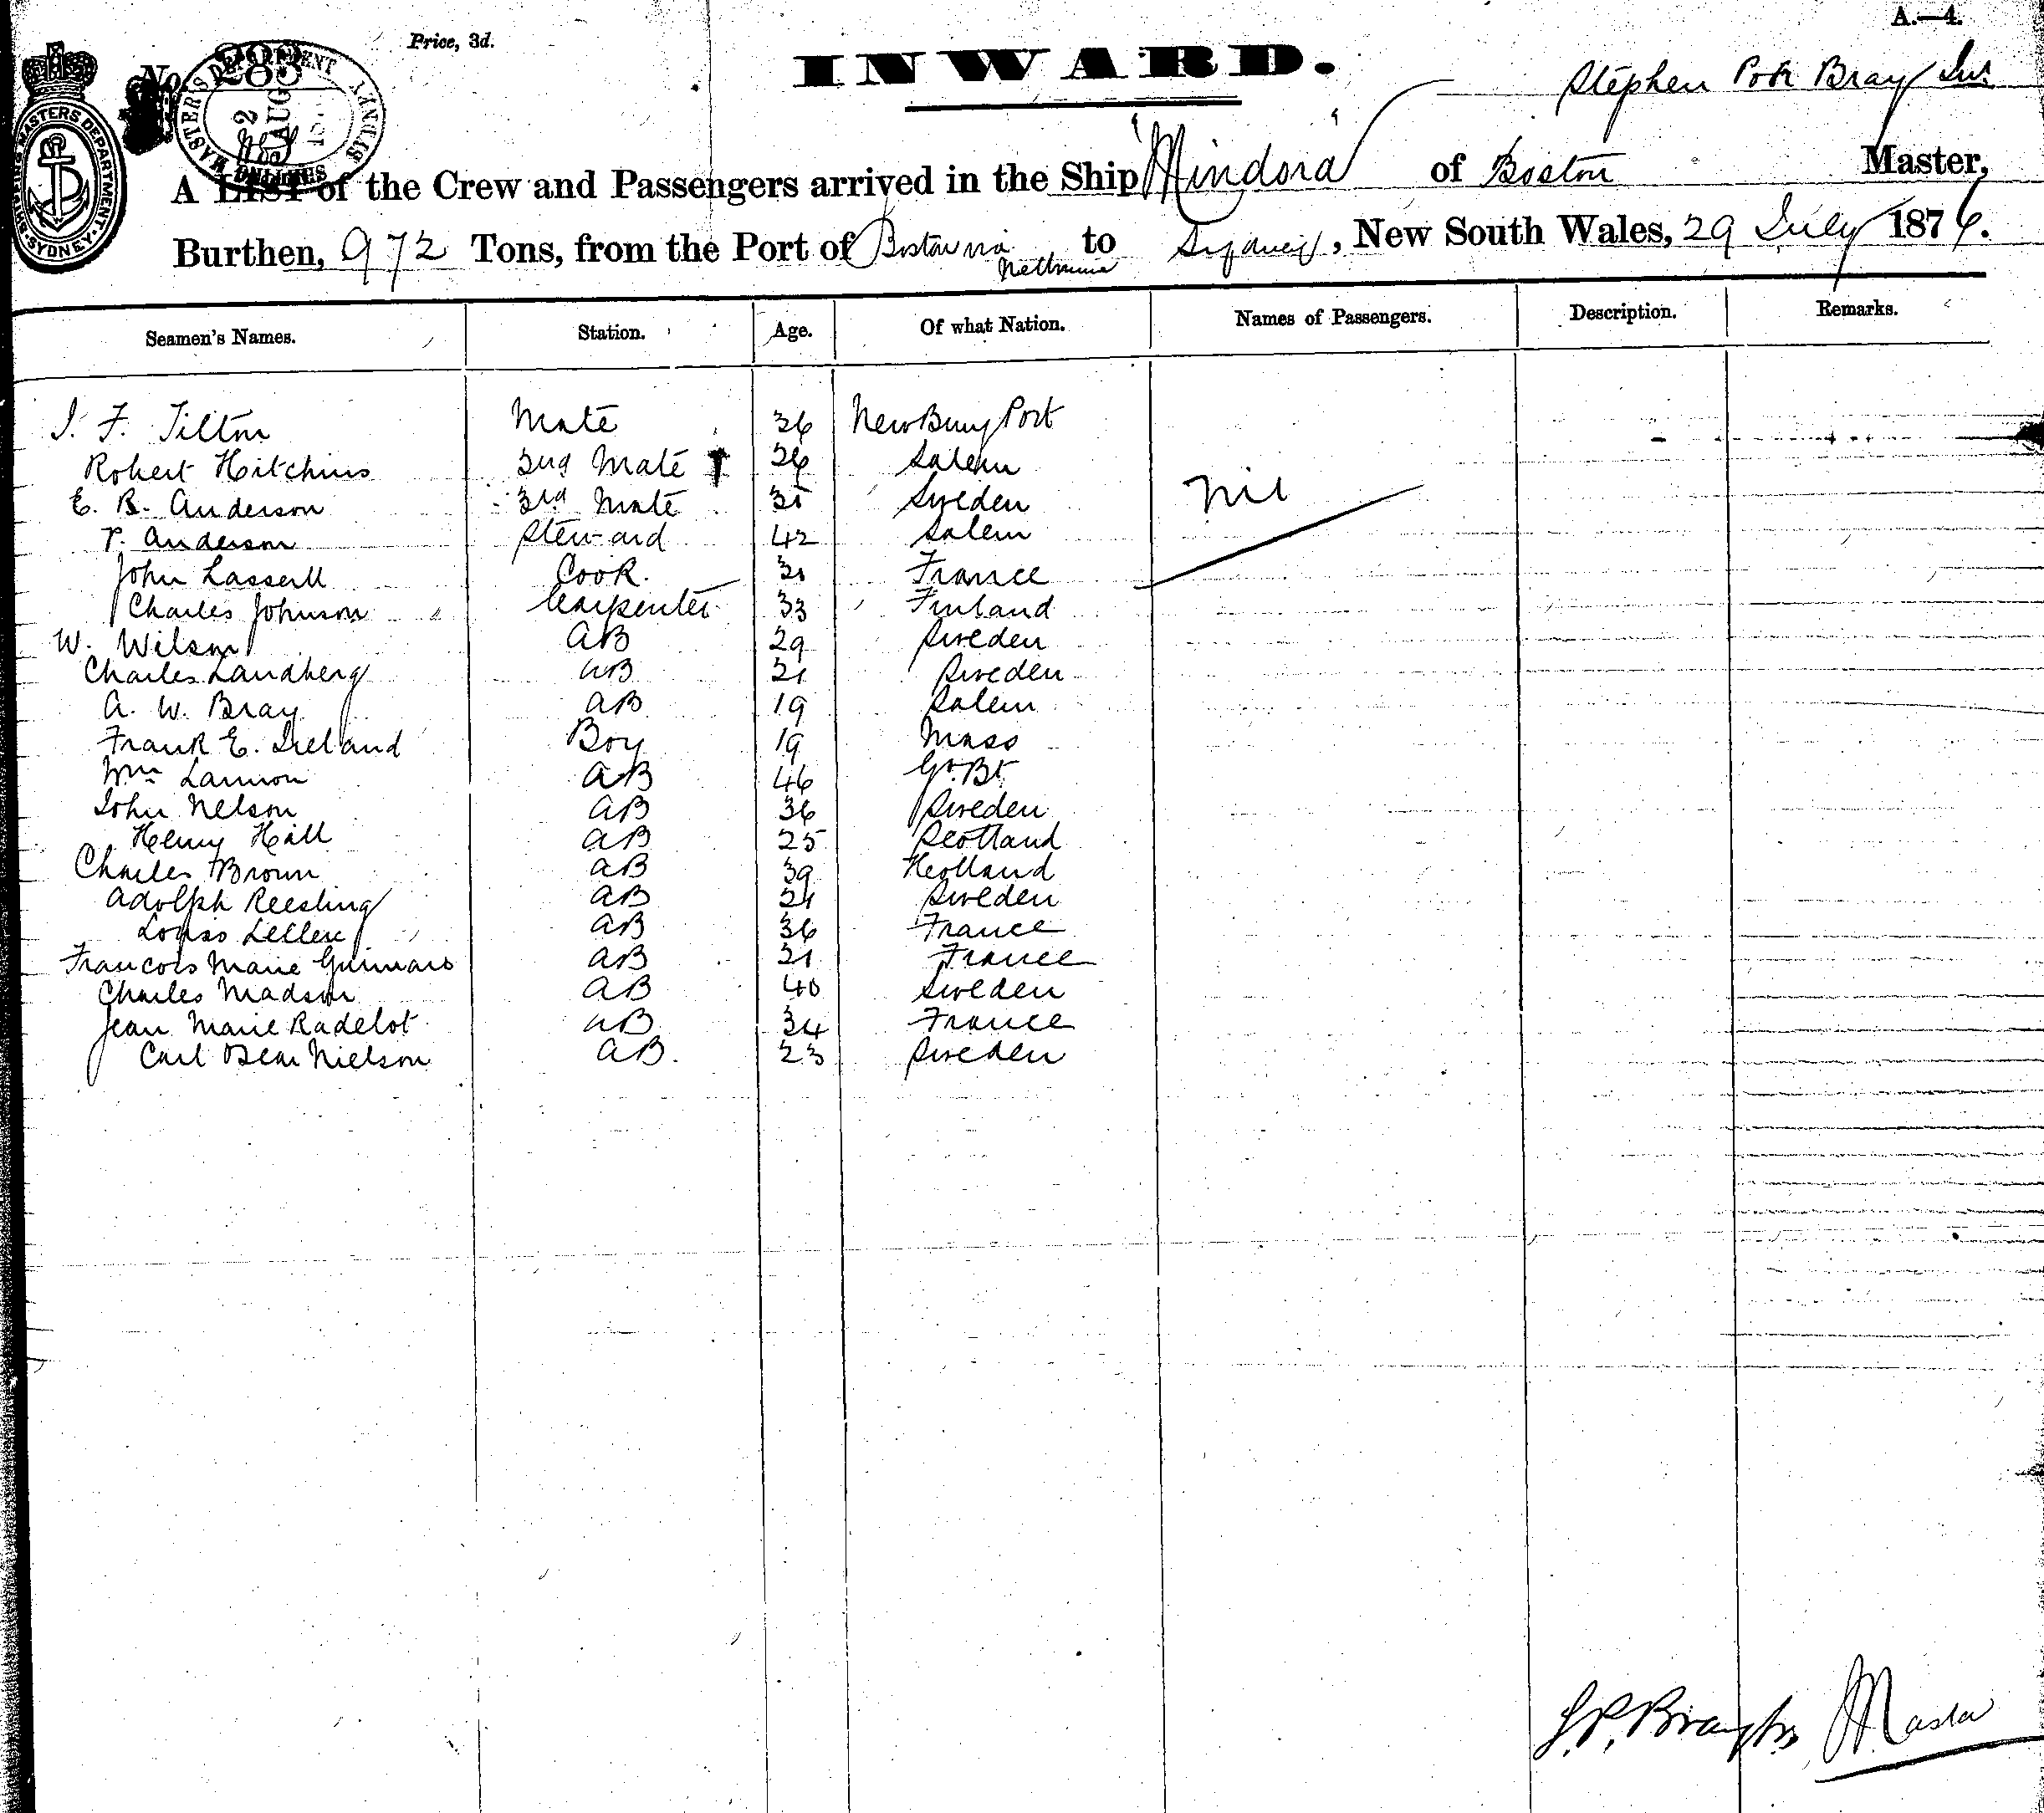 A.—4.
Price, 3d.
No. 283
INWARD.
Stephen Bray Jnr
SHIPPING MASTERS DEPARTMENT. SYDNEY.
MASTER'S DEPARTMENT SYDNEY
2 AUG
A LIST of the Crew and Passengers arrived in the Ship "Mindora" of Boston Master,
Burthen, 972 Tons, from the Port of Boston via Melbourne to Sydney, New South Wales, 29 July 1876.
Seamen's Names. Station. Age. Of what Nation. Names of Passengers. Description. Remarks.
J. F. Tilton Mate 36 NewBury Port
Robert Hitchins 2nd Mate 26 Salem
E. B. Anderson 3rd Mate 35 Sweden Nil
T. Anderson Steward 42 Salem
John Lassell Cook. 31 France
Charles Johnson Carpenter 33 Finland
W. Wilson AB 29 Sweden
Charles Landberg AB 21 Sweden
A. W. Bray AB 19 Salem
Frank E. Ireland Boy 19 Mass
Wm Lannon AB 46 Gt. Bt.
John Nelson AB 36 Sweden
Henry Hill AB 25 Scotland
Charles Brown AB 39 Holland
Adolph Reesling AB 24 Sweden
Louiss Leclerc AB 36 France
Francois Marie AB 31 France
Charles Madson AB 40 Sweden
Jean Marie Radelot AB 34 France
Carl Oscar Nielson AB. 23 Sweden
S. P. Bray Jr. Master